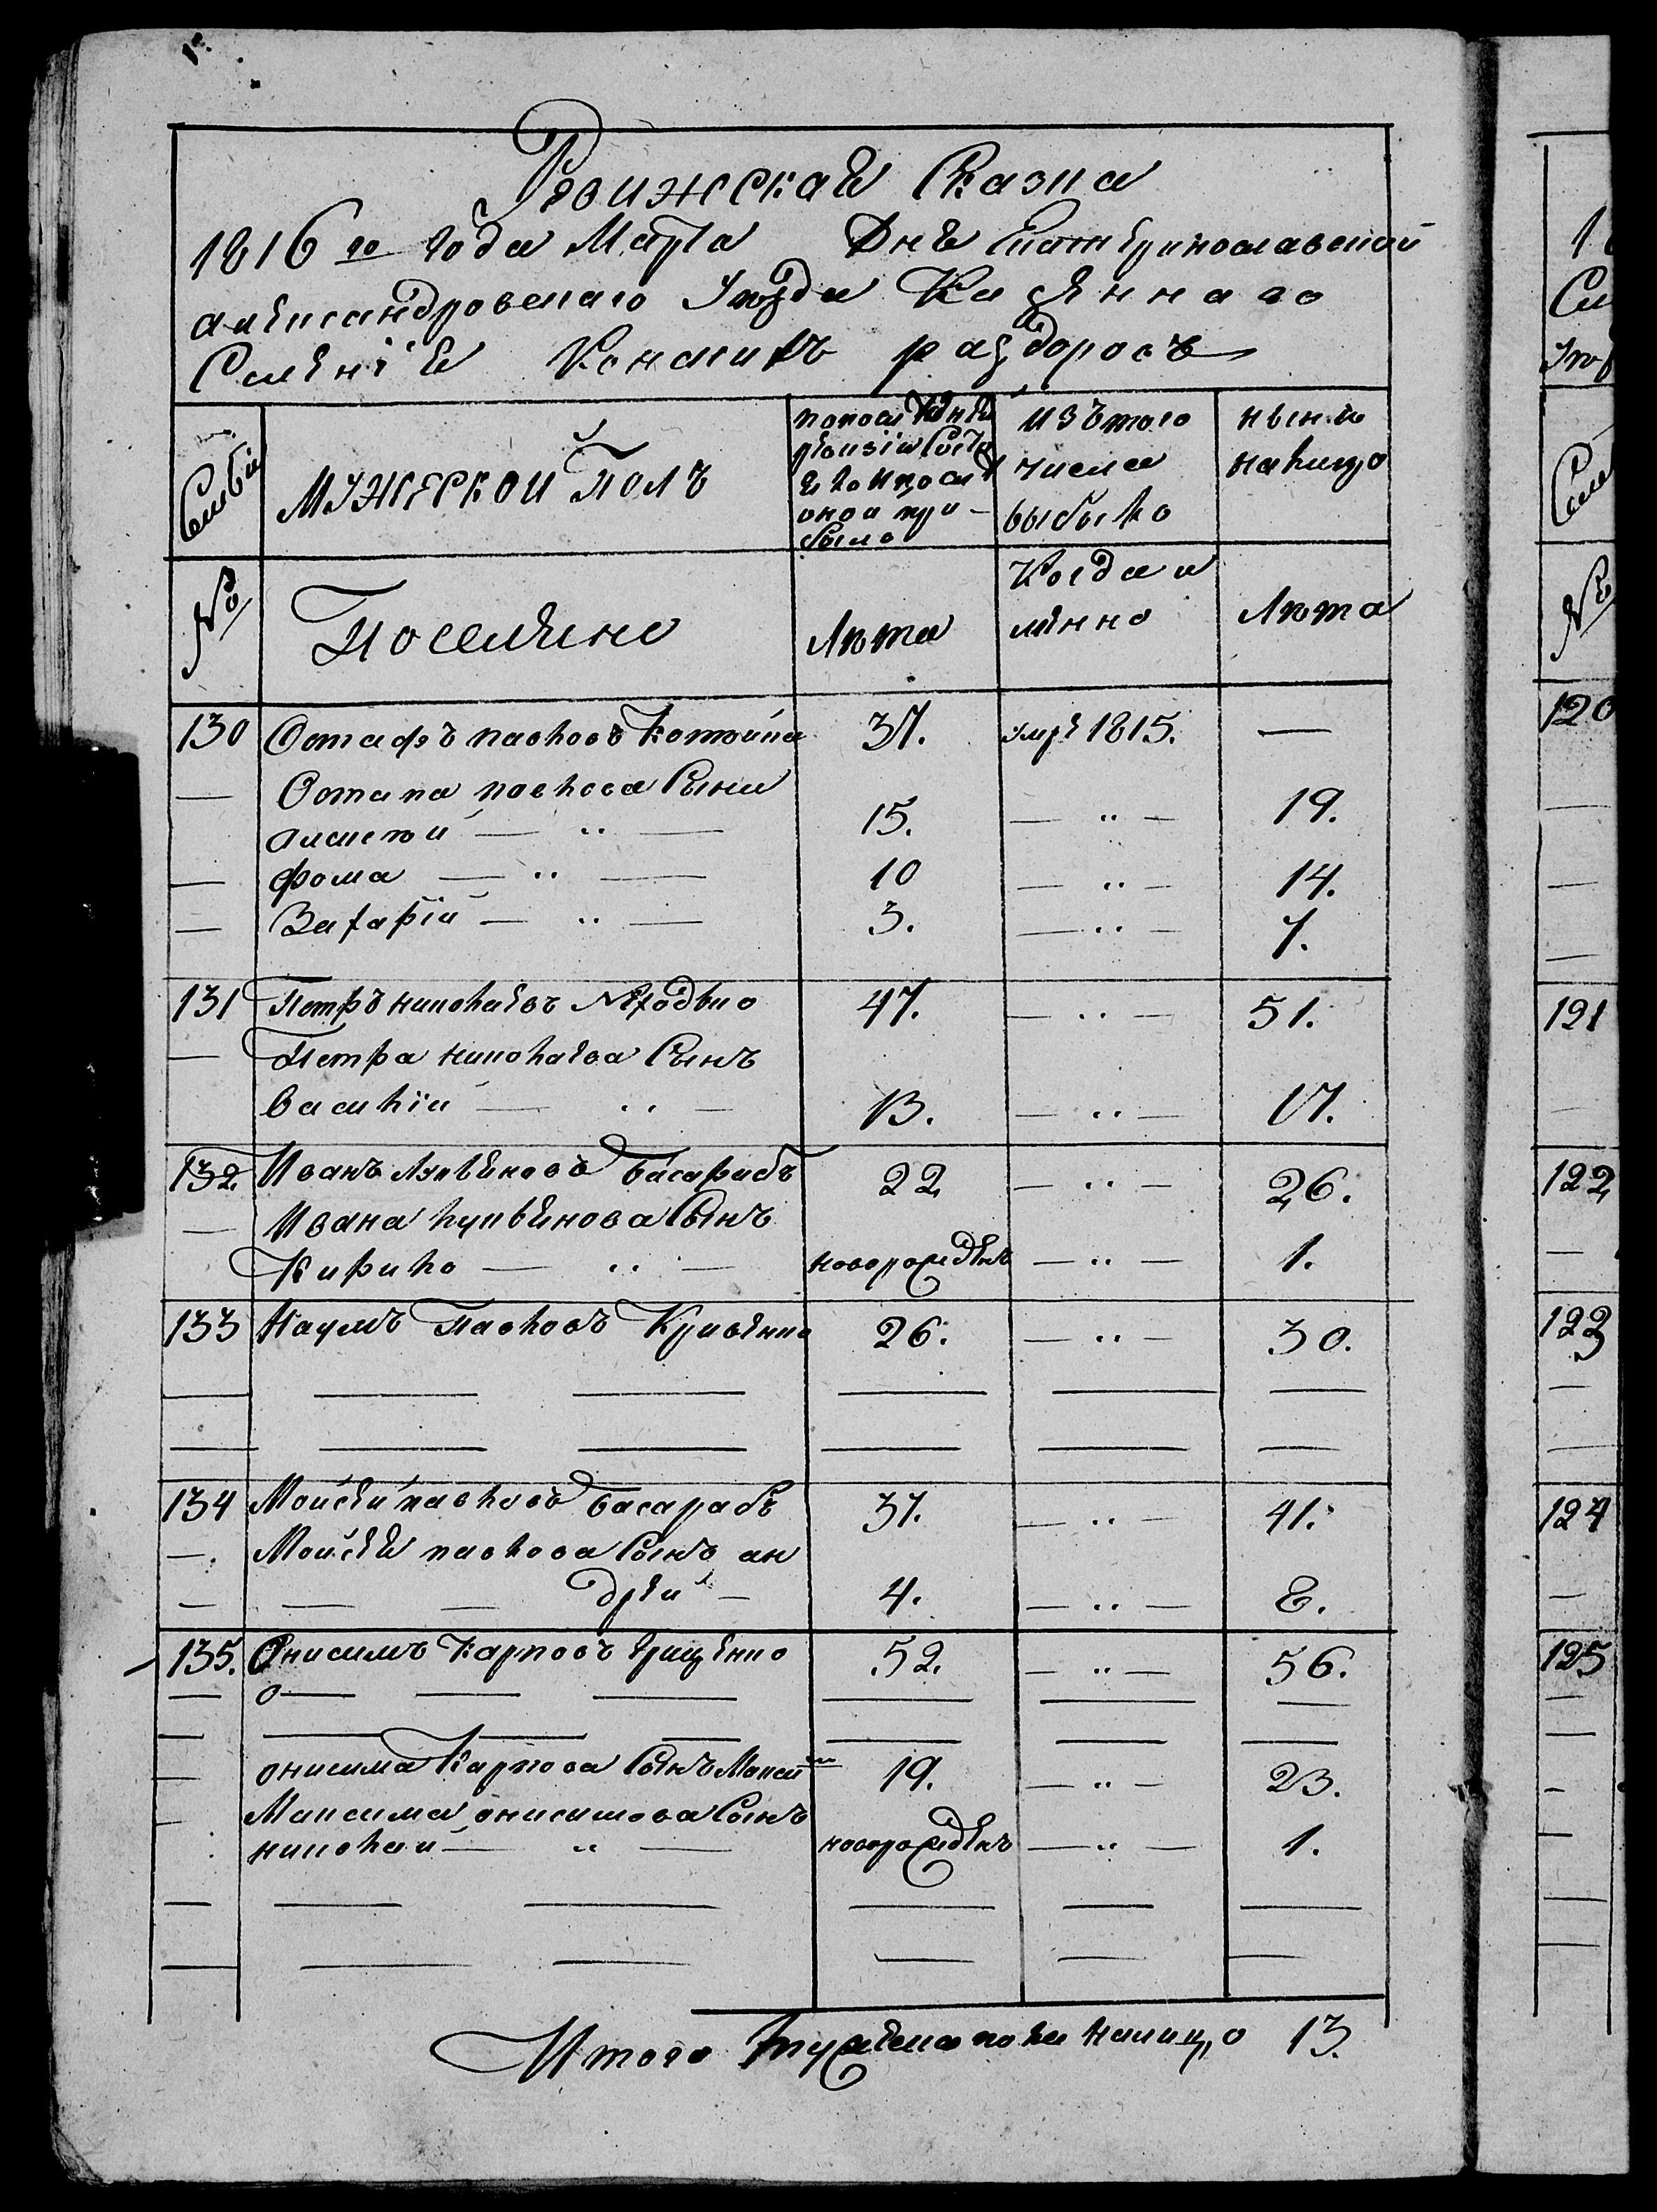 Ревижская Сказка
1816го Года Марта Дня Екатеринославской
александровскаго Уезда Казеннаго
Селения Конских раздоровъ
Семьи
МУЖЕСКОЙ Полъ
попоследней ревизии состояло и после оной прибыло
изътого числа выбыло
ныне налицо
№
Поселяне
Лета
Когда именно
Лета
130 Остафъ павловъ 37. умре 1815. —
— Остапа павлова Сыни
алисей — " — 15. — " — 19.
— фома — " — 10 — " — 14.
— Захарій — " — 3. — " — 7.
131 Петръ николаевъ Неходько 47. — " — 51.
— Петра николаева Сынъ
василій — " — 13. — " — 17.
132. Иванъ Басарабъ 22 — " — 26.
— Ивана Сынъ
Кирило — " — новорожденъ — " — 1.
133 Наумъ Павловъ 26. — " — 30.
134 Мойсей павловъ басарабъ 37. — " — 41.
— Мойсея павлова Сынъ ан
— — — дрей — 4. — " — 8.
135. Онисимъ Карповъ грищенко 52. — " — 56.
— онисима Карпова Сынъ Максим 19. — " — 23.
— Максима онисимова Сынъ
николай — " — новорожденъ — " — 1.
Итого мужеска пола налицо 13.
120
121
122
123
124
125